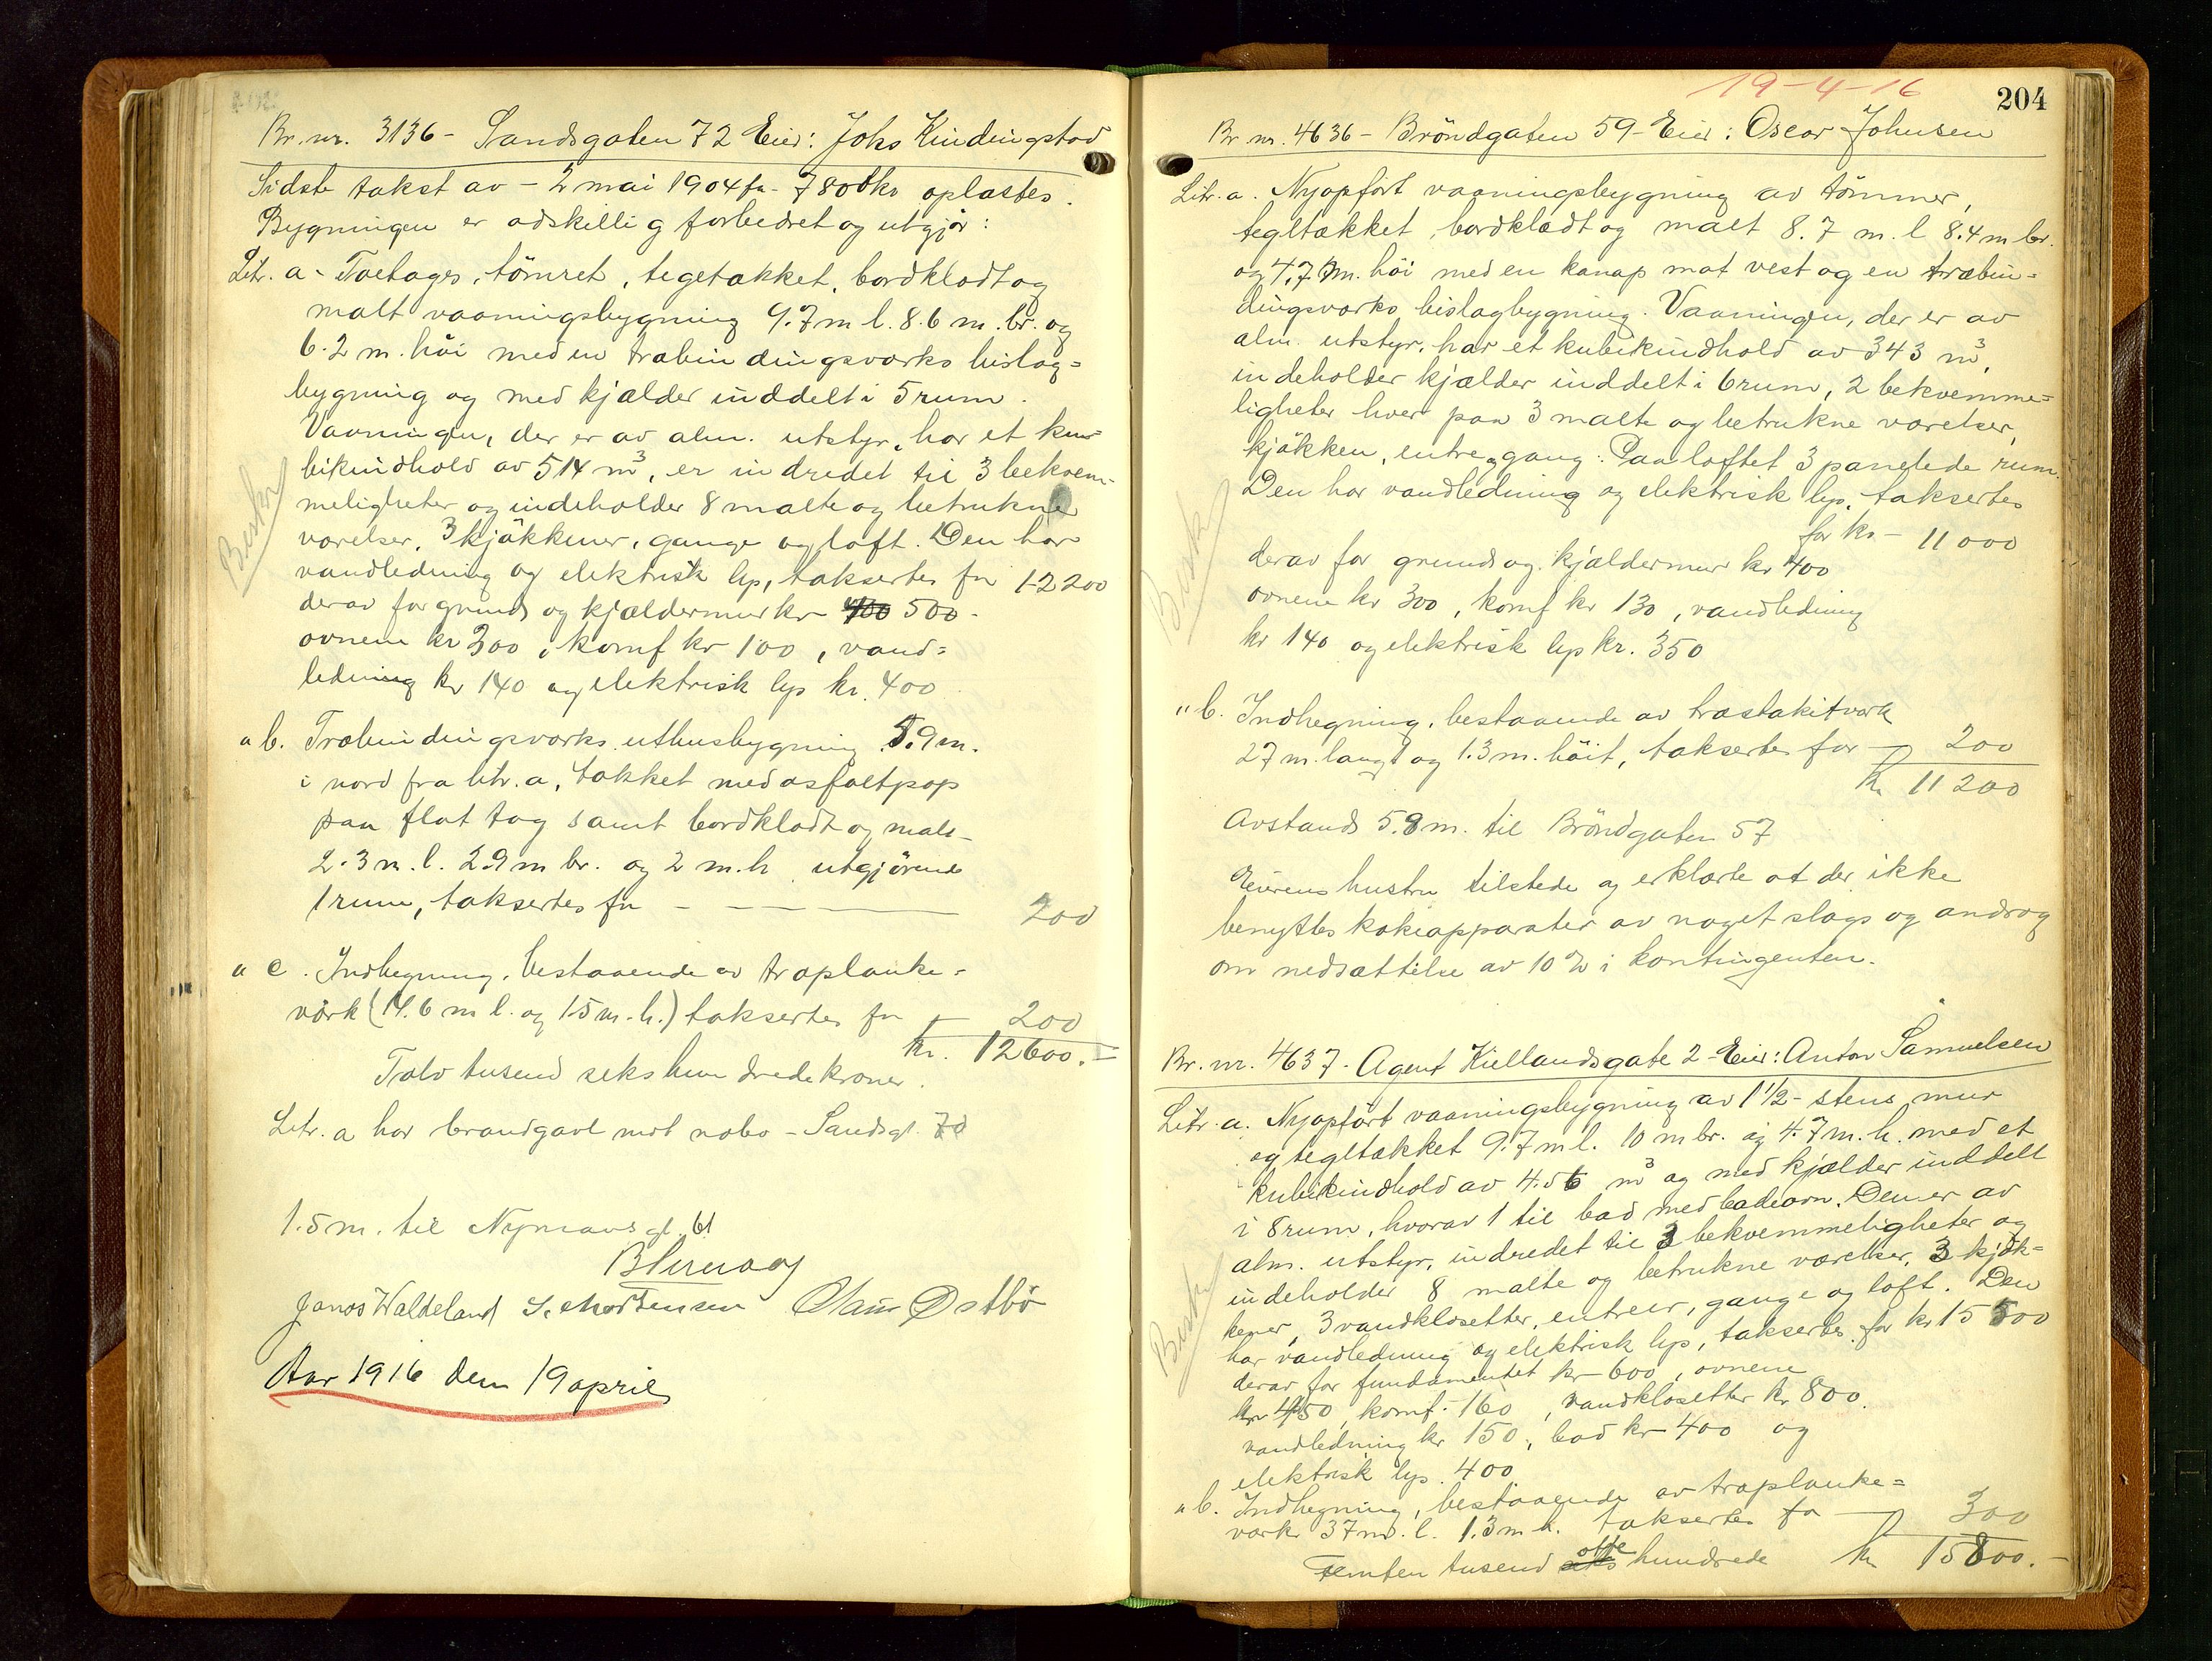 Br. nr. 3136 - Sandsgaten 72 Eier: Johs Kindingstad
Sidste takst av - 2 mai 1904 fr - 7800 kr oplæstes.
Bygningen er adskillig forbedret og utgjør:
Litr. a - Toetages, tömret, tegltækket, bordklædt og
malt vaaningsbygning 9.7 m l. 8.6 m. br. og
6.2 m. höi med en træbindingsværks bislag=
bygning og med kjælder inddelt i 5 rum.
Vaaningen, der er av alm. utstyr, har et ku-
bikindhold av 514 m³, er indredet til 3 bekvem-
meligheter og indeholder 8 malte og betrukne
værelser, 3 kjökkener, gange og loft. Den har
vandledning og elektrisk lys, taksertes for 12200
derav for grund og kjældermur kr 400 500 -
ovnene kr 300, komf kr 100, vand=
ledning kr 140 og elektrisk lys kr. 400
Beskr
" b. Træbindingsværks uthusbygning 5.9 m.
i nord fra litr. a, tækket med asfaltpap
paa flat tag samt bordklædt og malt
2.3 m. l. 2.9 m br. og 2 m. h utgjörende
1 rum, taksertes for - - - 200
" c. Indhegning, bestaaende av træplanke=
værk (14.6 m l. og 1.5 m. h.) taksertes for - 200
Kr. 12600.=
Tolv tusend seks hundrede kroner.
Litr. a har brandgavl mot nabo - Sandsgt. 70
1.5 m. til Nymansgt. 61
Janos Waldeland S. Mortensen Claus Østbö
Aar 1916 den 19 april
19-4-16
204
Br nr. 4636 - Bröndgaten 59 - Eier: Oscar Johnsen
Litr. a. Nyopfört vaaningsbygning av tömmer,
tegltækket, bordklædt og malt 8.7 m. l 8.4 m br.
og 4.7 m. höi med en kanap mot vest og en træbin=
dingsværks bislagbygning. Vaaningen, der er av
alm. utstyr, har et kubikindhold av 343 m³,
indeholder kjælder inddelt i 6 rum, 2 bekvemme=
ligheter hver paa 3 malte og betrukne værelser,
kjökken, entre og gang. Paa loftet 3 panelede rum.
Den har vandledning og elektrisk lys, taksertes
for kr - 11000
derav for grund og kjældermur kr 400
ovnene kr 300, komf kr 130, vandledning
kr 140 og elektrisk lys kr. 350
Beskr
" b. Indhegning, bestaaende av træstakitværk
27 m. langt og 1.3 m. höit, taksertes for - 200
Kr 11200
Avstand 5.8 m. til Bröndgaten 57
Eierens hustru tilstede og erklærte at der ikke
benyttes kokeapparater av noget slags og androg
om nedsættelse av 10 % i kontingenten.
Br. nr. 4637. Agent Kiellandsgate 2 - Eier: Anton Samuelsen
Litr. a. Nyopfört vaaningsbygning av 1 1/2 - stens mur
og tegltækket 9.7 m l. 10 m br. og 4.7 m. h. med et
kubikindhold av 456 m³ og med kjælder inddelt
i 8 rum, hvorav 1 til bad med badeovn. Den er av
alm. utstyr, indredet til 3 bekvemmeligheter og
indeholder 8 malte og betrukne værelser, 3 kjök=
kener, 3 vandklosetter, entreer, gange og loft. Den
har vandledning og elektrisk lys, taksertes for kr 15500
derav for fundamentet kr 600, ovnene
kr 450, komf. 160, vandklosetter kr 800.
vandledning kr 150, bad kr 400 og
elektrisk lys. 400
Beskr
" b. Indhegning, bestaaende av træplanke=
værk 37 m. l. 1.3 m h. taksertes for - 300
Femten tusend seks otte hundrede Kr 15800.-